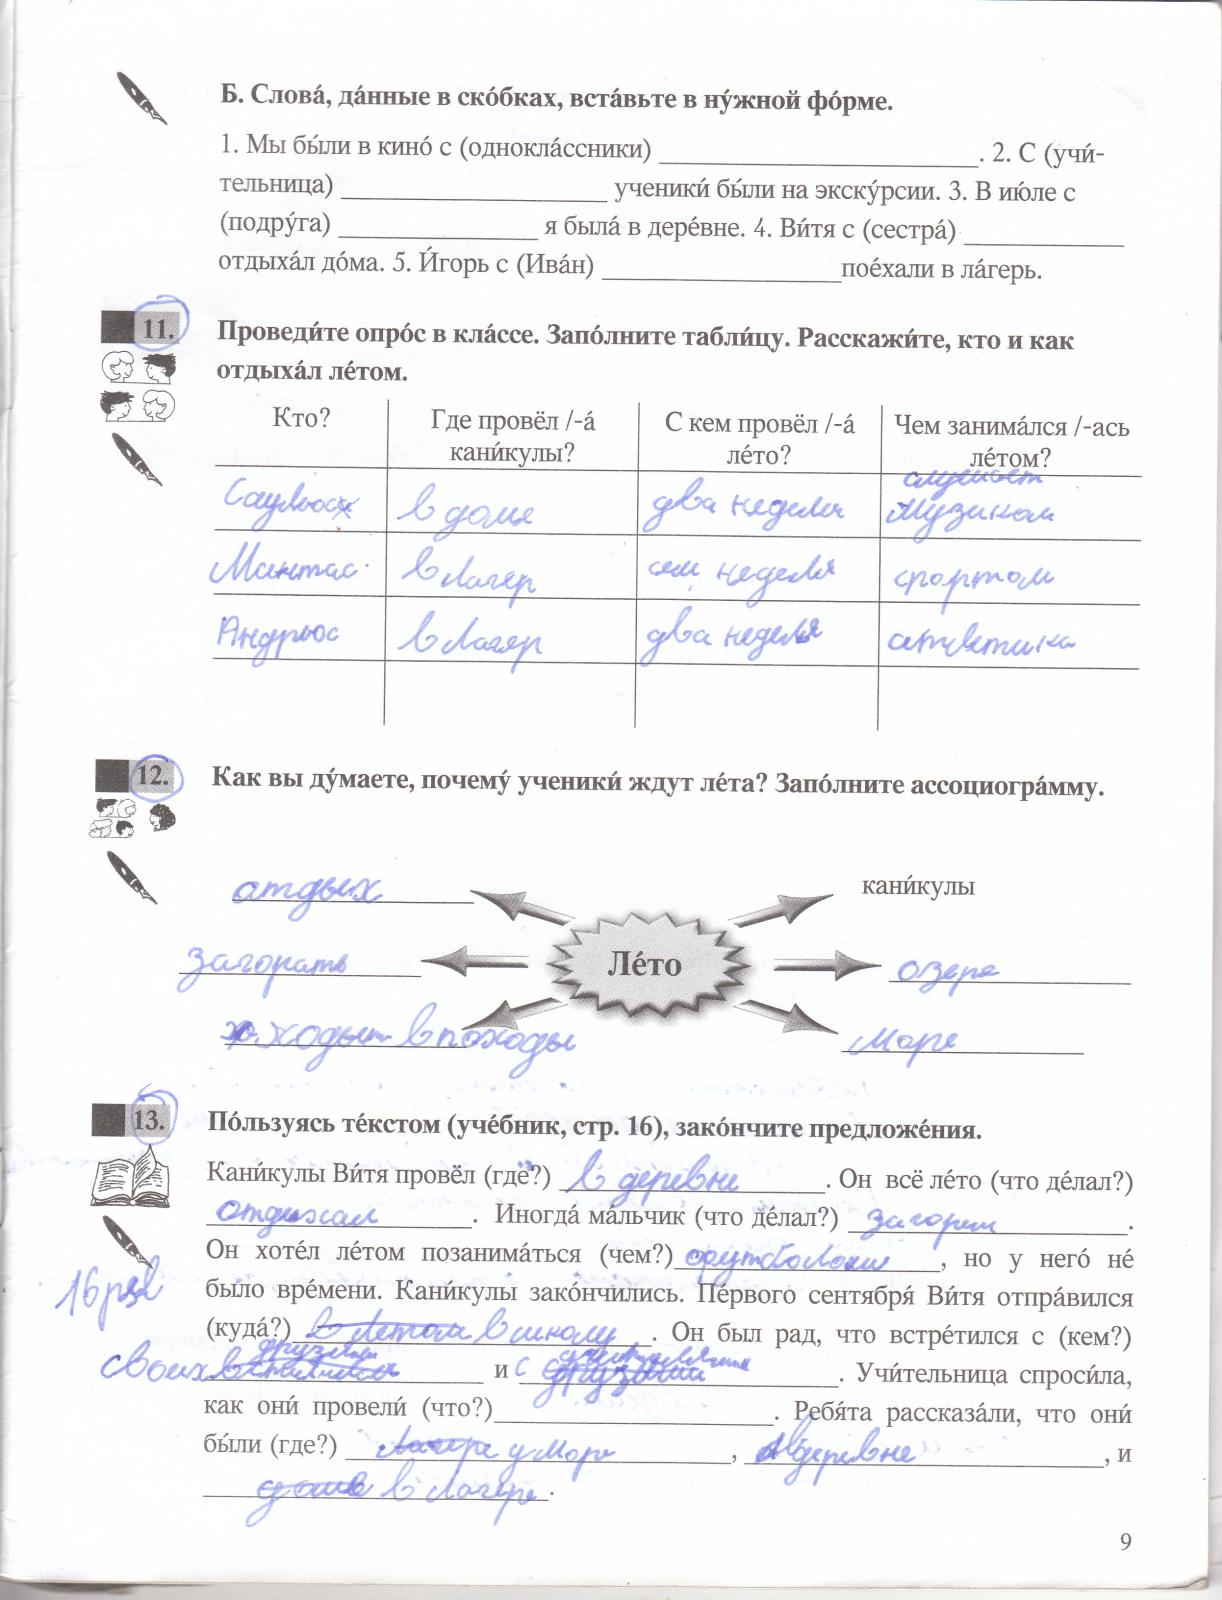 Б. Слова́, да́нные в ско́бках, вста́вьте в ну́жной фо́рме.
1. Мы бы́ли в кино́ с (однокла́ссники) ____. 2. С (учи́-
тельница) ____ ученики́ бы́ли на экску́рсии. 3. В ию́ле с
(подру́га) ____ я была́ в дере́вне. 4. Ви́тя с (сестра́) ____
отдыха́л до́ма. 5. И́горь с (Ива́н) ____ пое́хали в ла́герь.
11. Проведи́те опро́с в кла́ссе. Запо́лните табли́цу. Расскажи́те, кто и как
отдыха́л ле́том.
Кто? Где провёл /-а́ С кем провёл /-а́ Чем занима́лся /-ась
кани́кулы? ле́то? ле́том?
слушает
в доме два недели музиком
Мантас в лагер сем неделя спортом
Андрюс в лагер два неделя
12. Как вы ду́маете, почему́ ученики́ ждут ле́та? Запо́лните ассоциогра́мму.
отдых кани́кулы
загорать Ле́то озеро
ходыт в походы море
13. По́льзуясь те́кстом (уче́бник, стр. 16), зако́нчите предложе́ния.
Кани́кулы Ви́тя провёл (где?) в деревне. Он всё ле́то (что де́лал?)
отдихал. Иногда́ ма́льчик (что де́лал?) загорит.
Он хоте́л ле́том позанима́ться (чем?) , но у него́ не́
бы́ло вре́мени. Кани́кулы зако́нчились. Пе́рвого сентября́ Ви́тя отпра́вился
16
(куда́?) в школу. Он был рад, что встре́тился с (кем?)
своих друзями и с . Учи́тельница спроси́ла,
как они́ провели́ (что?) ____. Ребя́та рассказа́ли, что они́
бы́ли (где?) у море, в деревне, и
в лагере.
9